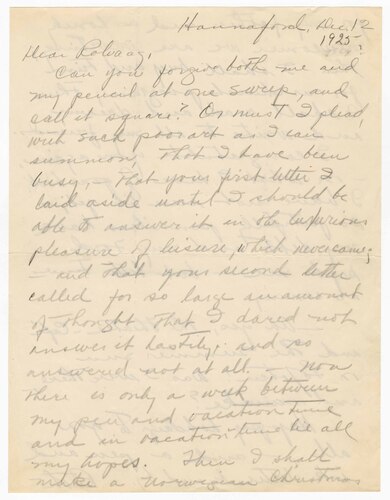 Hannaford, Dec. 12
1925.
Dear Rolvaag,
Can you forgive both me and
my pencil at one sweep, and
call it square? Or must I plead,
with such poor art as I can
summon, that I have been
busy, – that your first letter I
laid aside until I should be
able to answer it in the luxurious
pleasure of leisure, which never came;
and that your second letter
called for so large an amount
of thought that I dared not
answer it hastily; and so
answered not at all. – Now
there is only a week between
my pen and vacation time
and in vacation time lie all
my hopes. Then I shall
make a Norwegian Christmas